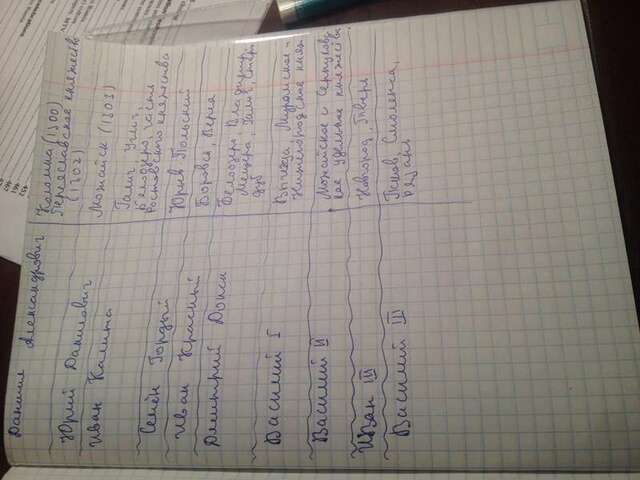 Даниил Александрович
Коломна (1300)
Переяславское княжество
(1302)
Юрий Данилович
Можайск (1303)
Иван Калита
Галич, Углич,
Белоозеро, часть
Ростовского княжества
Семён Гордый
Юрьев Польский
Иван Красный
Боровск, Верея
Дмитрий Донск
Белоозеро, Владимир,
Мещера, Галич, Старо
дуб
Василий I
Вычегда, Муромское и
Нижегородское княж
Василий II
Можайское и Серпуховс
кое удельные княжества
Иван III
Новгород, Тверь
Василий III
Псков, Смоленск,
Рязань